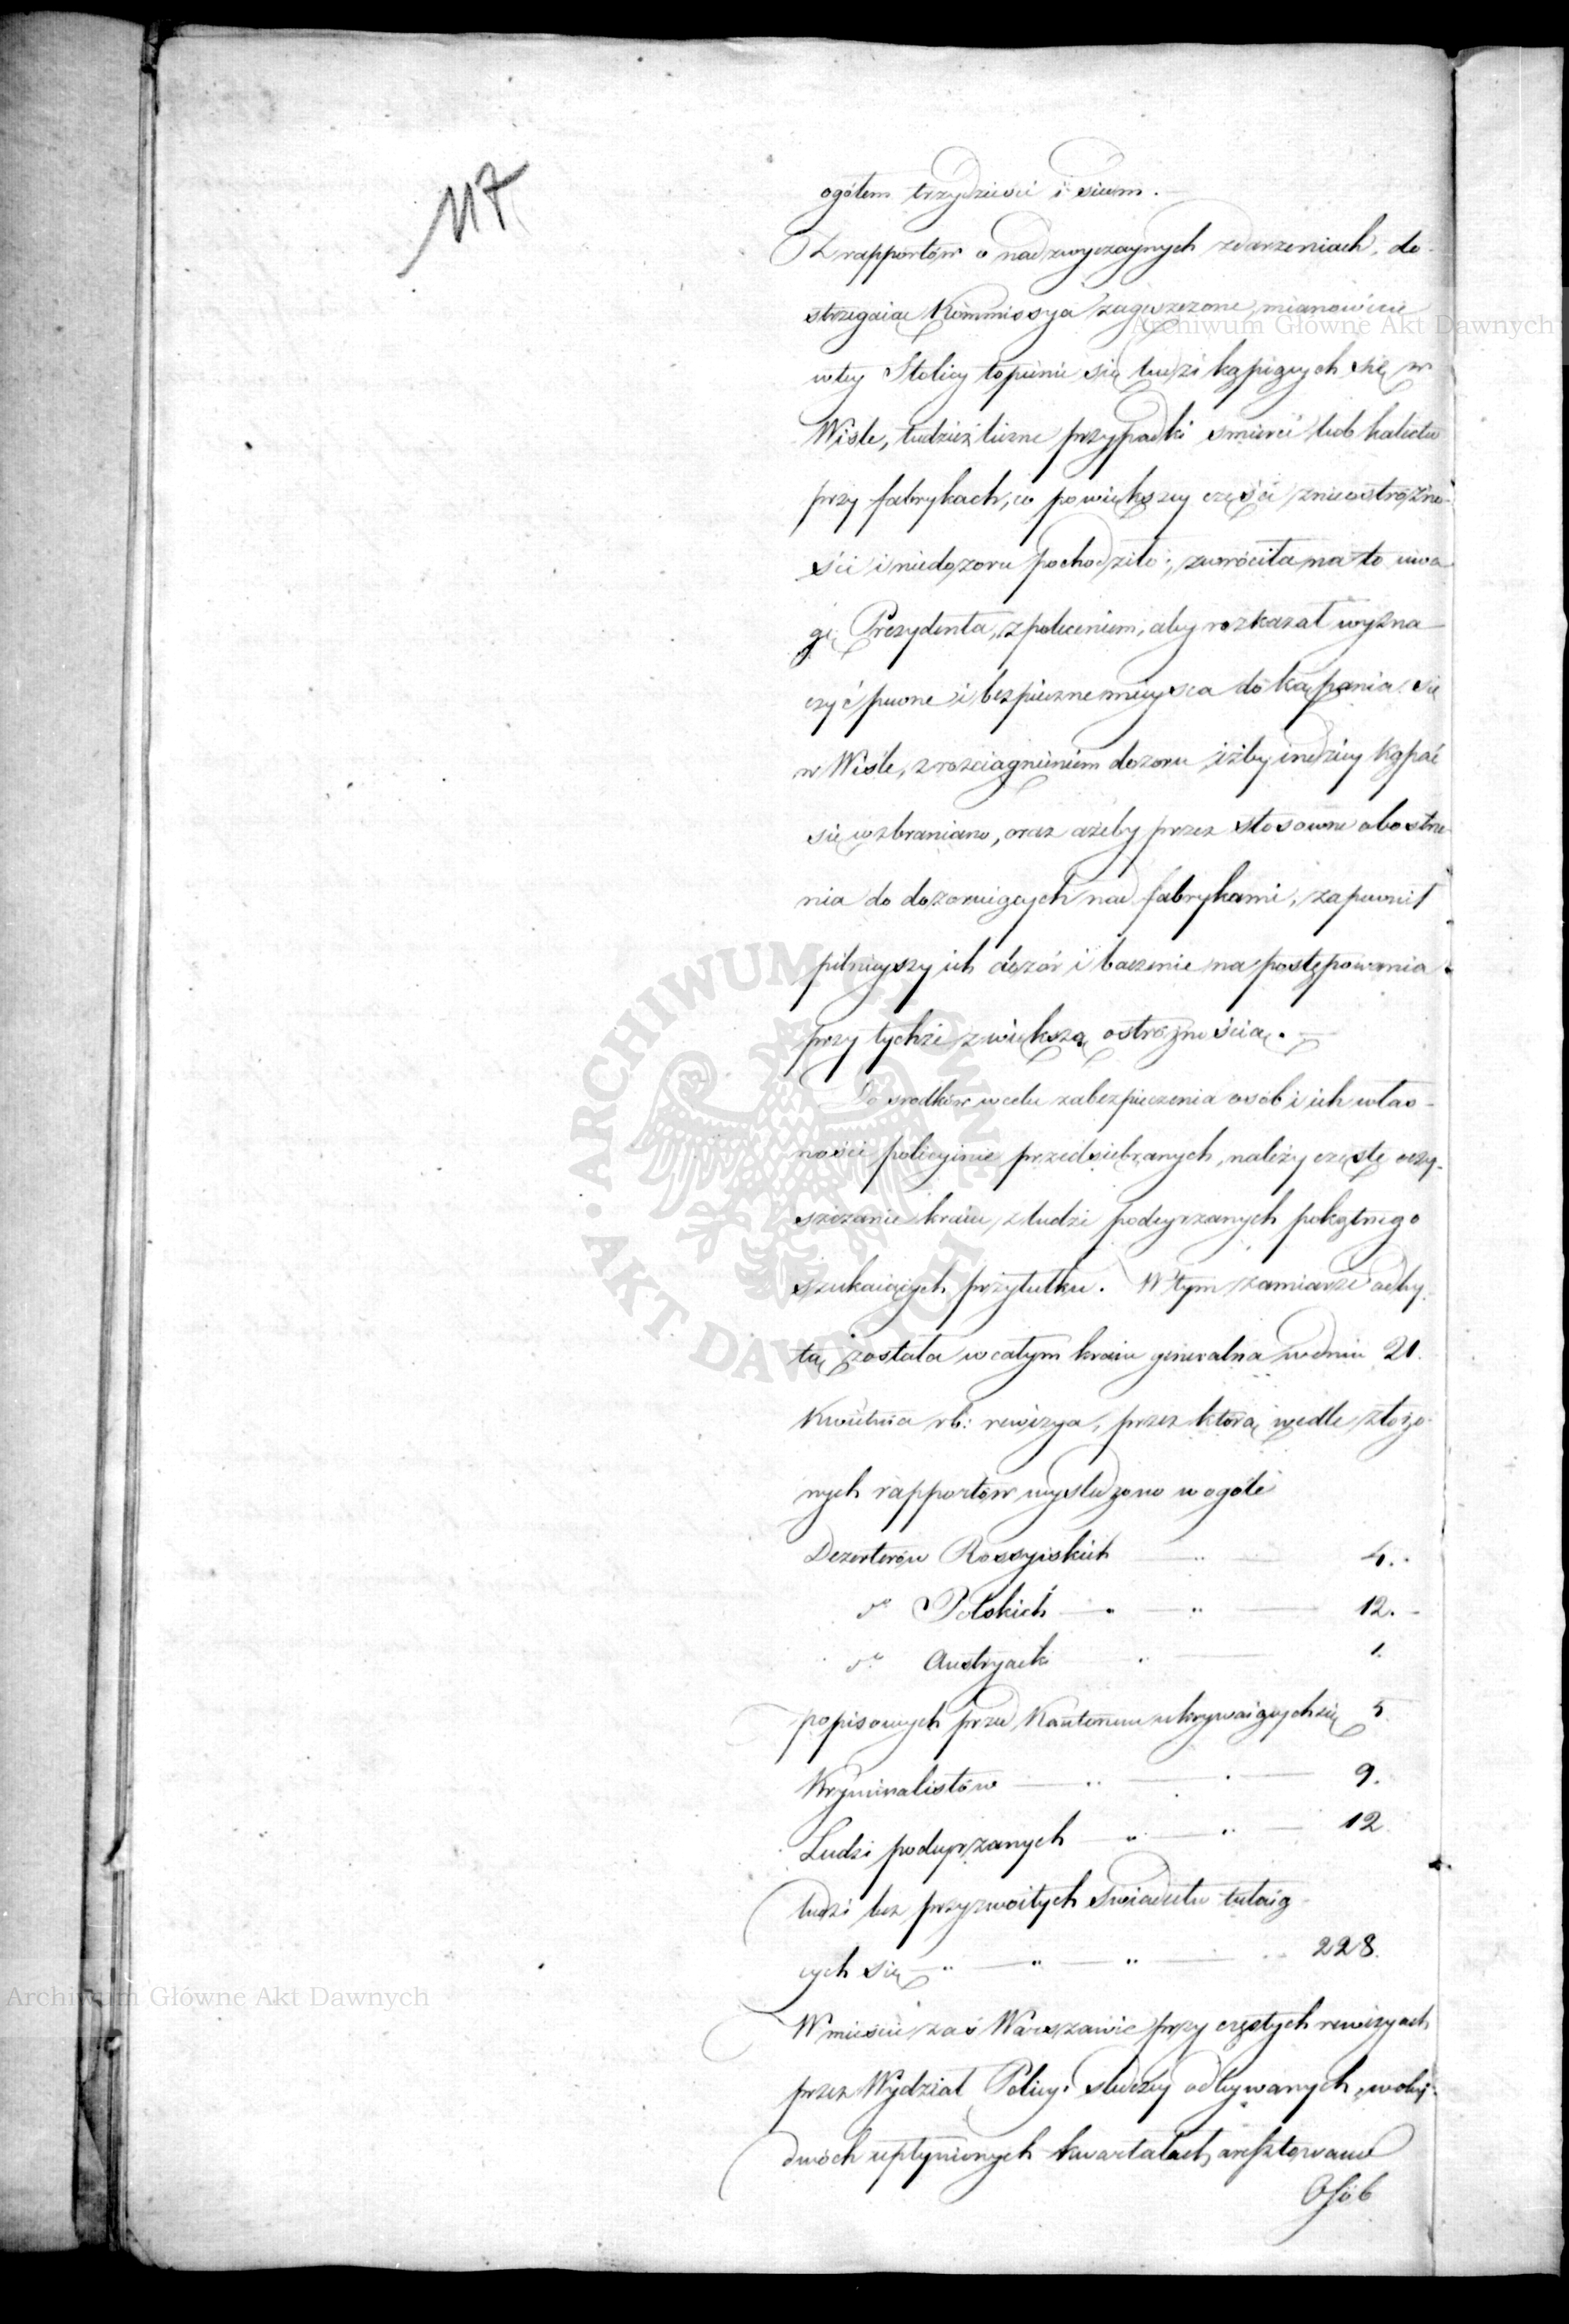 117
ogółem trzydzieści i siedm.
Z rapportów o nadzwyczaynych zdarzeniach, do
strzegaiąc Kommissya zagęszczone, mianowicie
w tey Stolicy topienie się ludzi kąpiących się w
Wiśle, tudzież liczne przypadki śmierci lub kalectw
przy fabrykach, co po większey części z nieostrożno-
ści i niedozoru pochodziło; zwróciła na to uwa
gę Prezydenta, z poleceniem, aby rozkazał wyzna
czyć pewne i bezpieczne mieysca do kąpania się
w Wiśle, z rozciągnieniem dozoru iżby indziey kąpać
się wzbraniano, oraz ażeby przez stosowne obostrze
nia do dozoruiących nad fabrykami, zapewnił
pilnieyszy ich dozór i baczenie na postępowania
przy tychże z większą ostrożnością.
Do srodków w celu zabezpieczenia osób i ich włas-
ności policyinie przedsiebranych, należy częste oczy-
szczanie kraiu, z ludzi podeyrzanych pokątnego
szukaiących przytułku. W tym zamiarze odby
tą została w całym kraiu generalna w dniu 21.
Kwietnia rb: rewizya, przez którą wedle złożo
nych rapportów wyśledzono w ogóle
Dezerterów Rossyiskich 4.
do Polskich 12.
do Austryacki 1.
popisowych przed Kantonem ukrywaiących się 5
Kryminalistów 9.
Ludzi podeyrzanych 12
ludzi bez przyzwoitych świadectw tułaią
cych się 228.
W mieście zaś Warszawie przy częstych rewizyach
przez Wydział Policyi śledczey odbywanych, w obu
dwóch upłynionych kwartałach aresztowano
Osób
Archiwum Główne Akt Dawnych
ARCHIWUM GŁÓWNE AKT DAWNYCH
Archiwum Główne Akt Dawnych